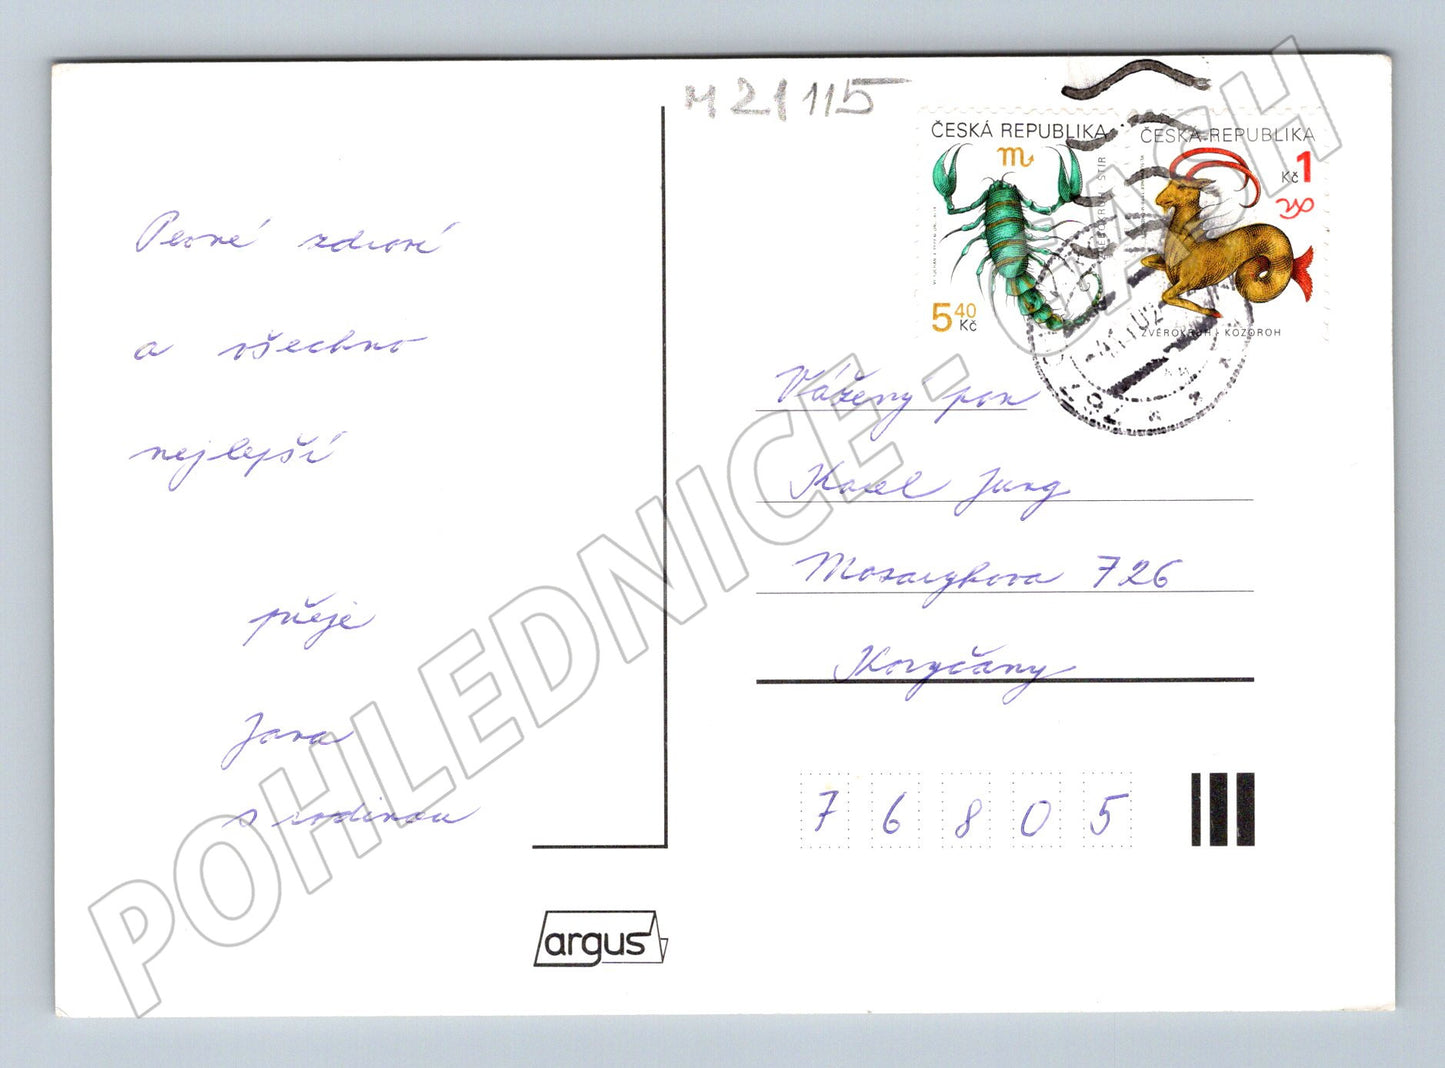 M 21115
Pevné zdraví
a všechno
nejlepší
přeje
Jana
s rodinou
ČESKÁ REPUBLIKA
5 40 Kč
ZVĚROKRUH - ŠTÍR
ČESKÁ REPUBLIKA
Kč 1
ZVĚROKRUH - KOZOROH
Vážený pan
Karel Jung
Masarykova 726
Koryčany
7 6 8 0 5
argus
POHLEDNICE - CASH